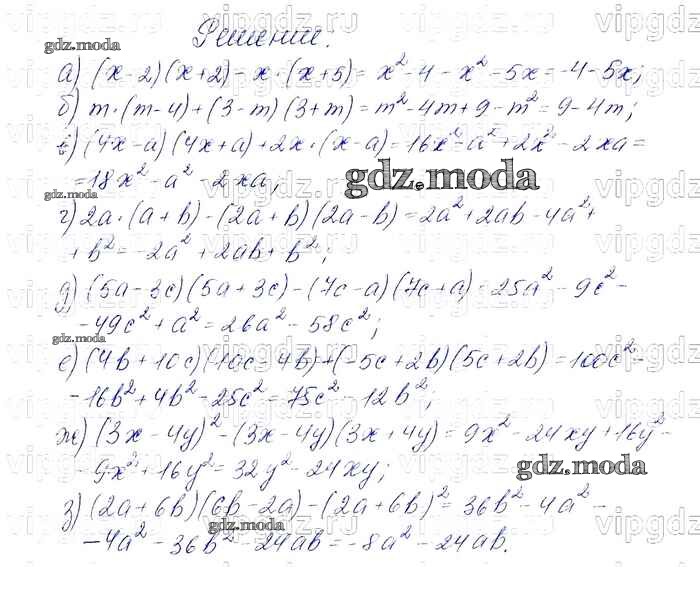 Решение.
gdz.moda
а) (x-2)(x+2)-x·(x+5)=x²-4-x²-5x=-4-5x;
б) m·(m-4)+(3-m)(3+m)=m²-4m+9-m²=9-4m;
в) (4x-a)(4x+a)+2x·(x-a)=16x²-a²+2x²-2xa=
=18x²-a²-2xa;
gdz.moda
gdz.moda
г) 2a·(a+b)-(2a+b)(2a-b)=2a²+2ab-4a²+
+b²=-2a²+2ab+b²;
д) (5a-3c)(5a+3c)-(7c-a)(7c+a)=25a²-9c²-
-49c²+a²=26a²-58c²;
gdz.moda
е) (4b+10c)(10c-4b)+(-5c+2b)(5c+2b)=100c²-
-16b²+4b²-25c²=75c²-12b²;
ж) (3x-4y)²-(3x-4y)(3x+4y)=9x²-24xy+16y²-
-9x²+16y²=32y²-24xy;
gdz.moda
з) (2a+6b)(6b-2a)-(2a+6b)²=36b²-4a²-
gdz.moda
-4a²-36b²-24ab=-8a²-24ab.